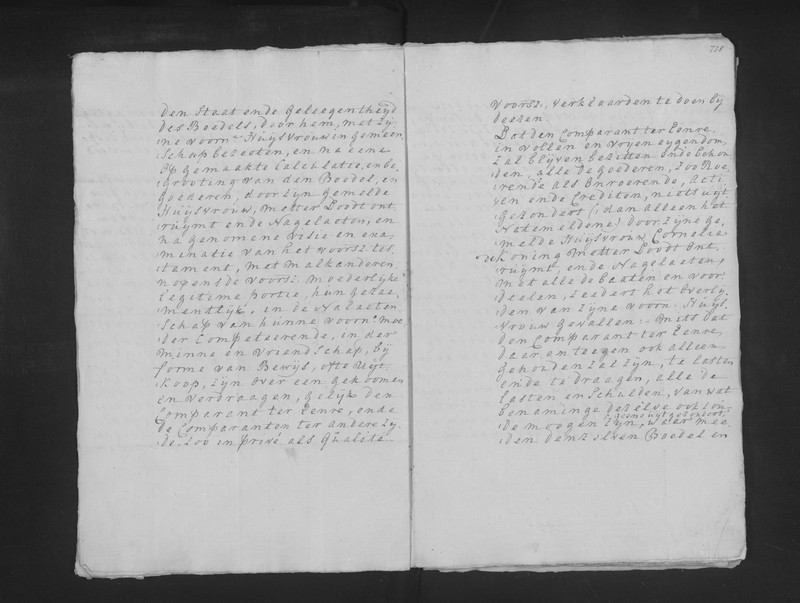 den Staat ende geleegentheyd
des Boedels, door hem, met zy-
ne voorn. Huijsvrouw in gemeen
Schap bezeeten, en na eene
op gemaakte Calculatie, en be-
grooting van den Boedel, en
goederen, door zyn gemelde
Huijsvrouw, metter Doodt ont
ruijmt ende Nagelaeten, en
na genomene visie en exa
minatie van het voorsz. tes
tament, met malkanderen,
nopens de voorsz. moederlijke
legitime portie, hun gezae-
mentlijk, in de Nalaeten
Schap van hunne voorn. moe
der Competeerende, in der
minne en vriendschap, bij
forme van Bewijs, ofte Uijt
koop, zijn over een gekoomen
en verdraagen, gelijk den
Comparant ter Eenre, ende
de Comparanten ter andere zy
de zoo in privé als qualité
728
voorsz., verklaarden te doen bij
deezen
Dat den Comparant ter Eenre
in vollen en vryen eygendom,
zal blijven bezitten ende behou
den, alle de goederen, zoo Roe
rende als Onroerende, Acti
en ende Crediten, niets uijt
gezondert (:dan alleen het
Natemeldene) door zyne ge-
melde Huijsvrouw Cornelia
de Koning metter Doodt Ont
ruijmt, ende Nagelaeten,
met alle de baaten en voor
deelen, zeedert het overly
den van zyne voorn. Huijs
vrouw gevallen. Mits dat
den Comparant ter Eenre,
daar en teegen ook alleen
gehouden zal zijn, te lasten
ende te draagen, alle de
lasten en Schulden, van wat
benaminge dezelve ook zou-
geene uijtgezondert,
de moogen zyn, waar mee
den denzelven Boedel en